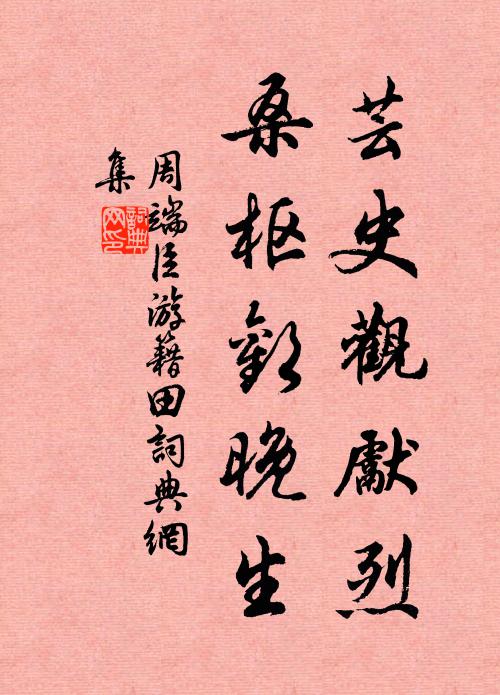 芸史觀獻烈
桑枢歎晚生
周端臣游籍田詞典網
集
詞典
网印